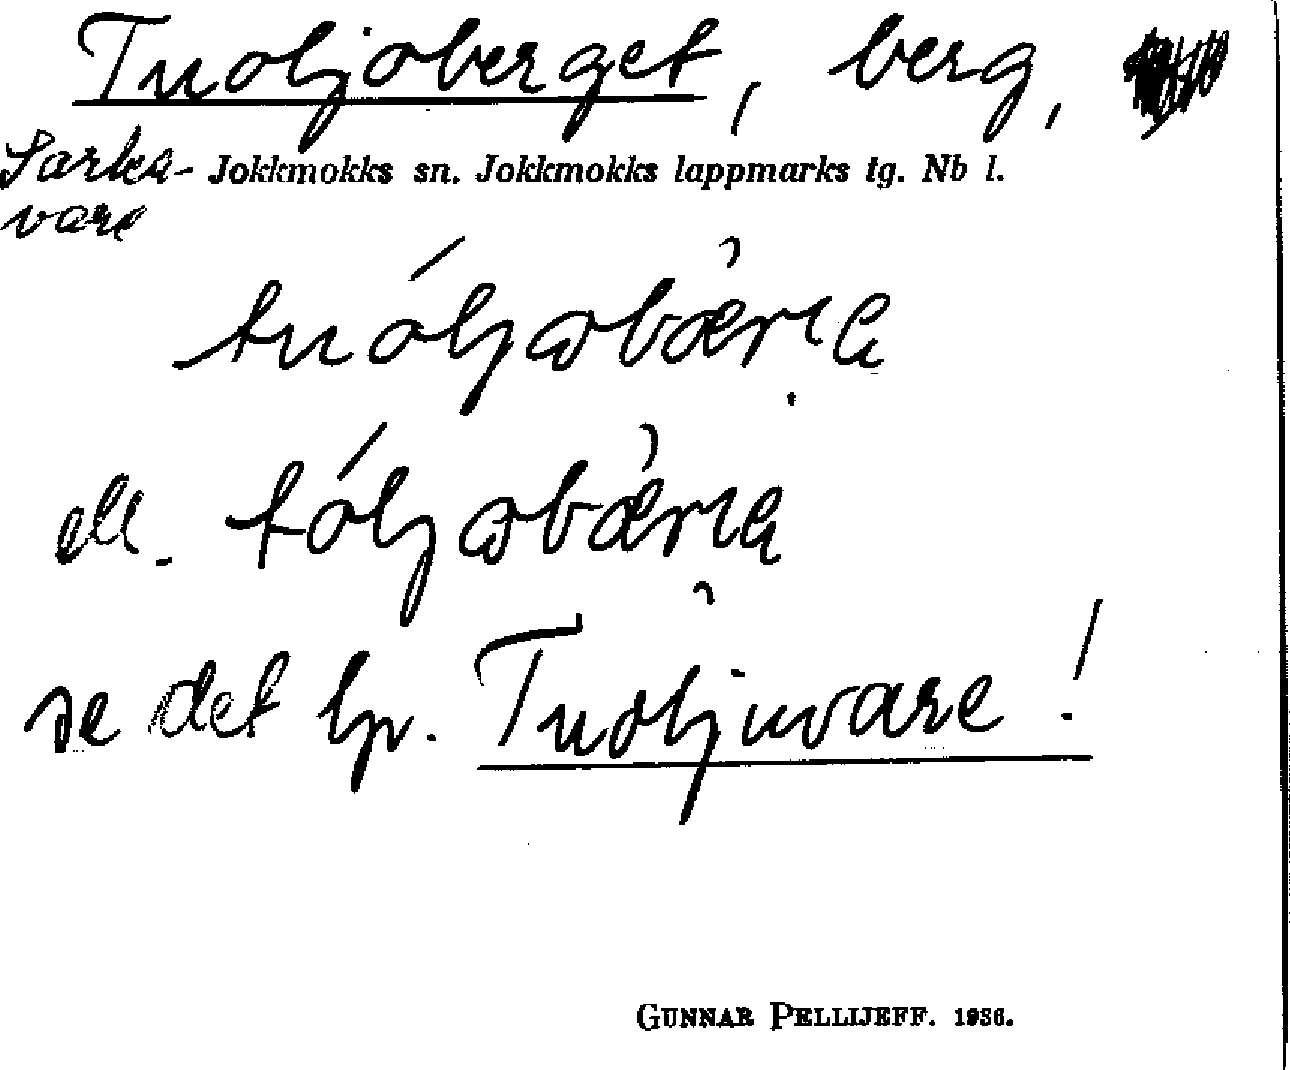 Tuoljoberget, berg,
Sarka- Jokkmokks sn. Jokkmokks lappmarks tg. Nb l.
vare
ell.
se det lp. Tuoljuvare!
GUNNAR PELLIJEFF. 1936.